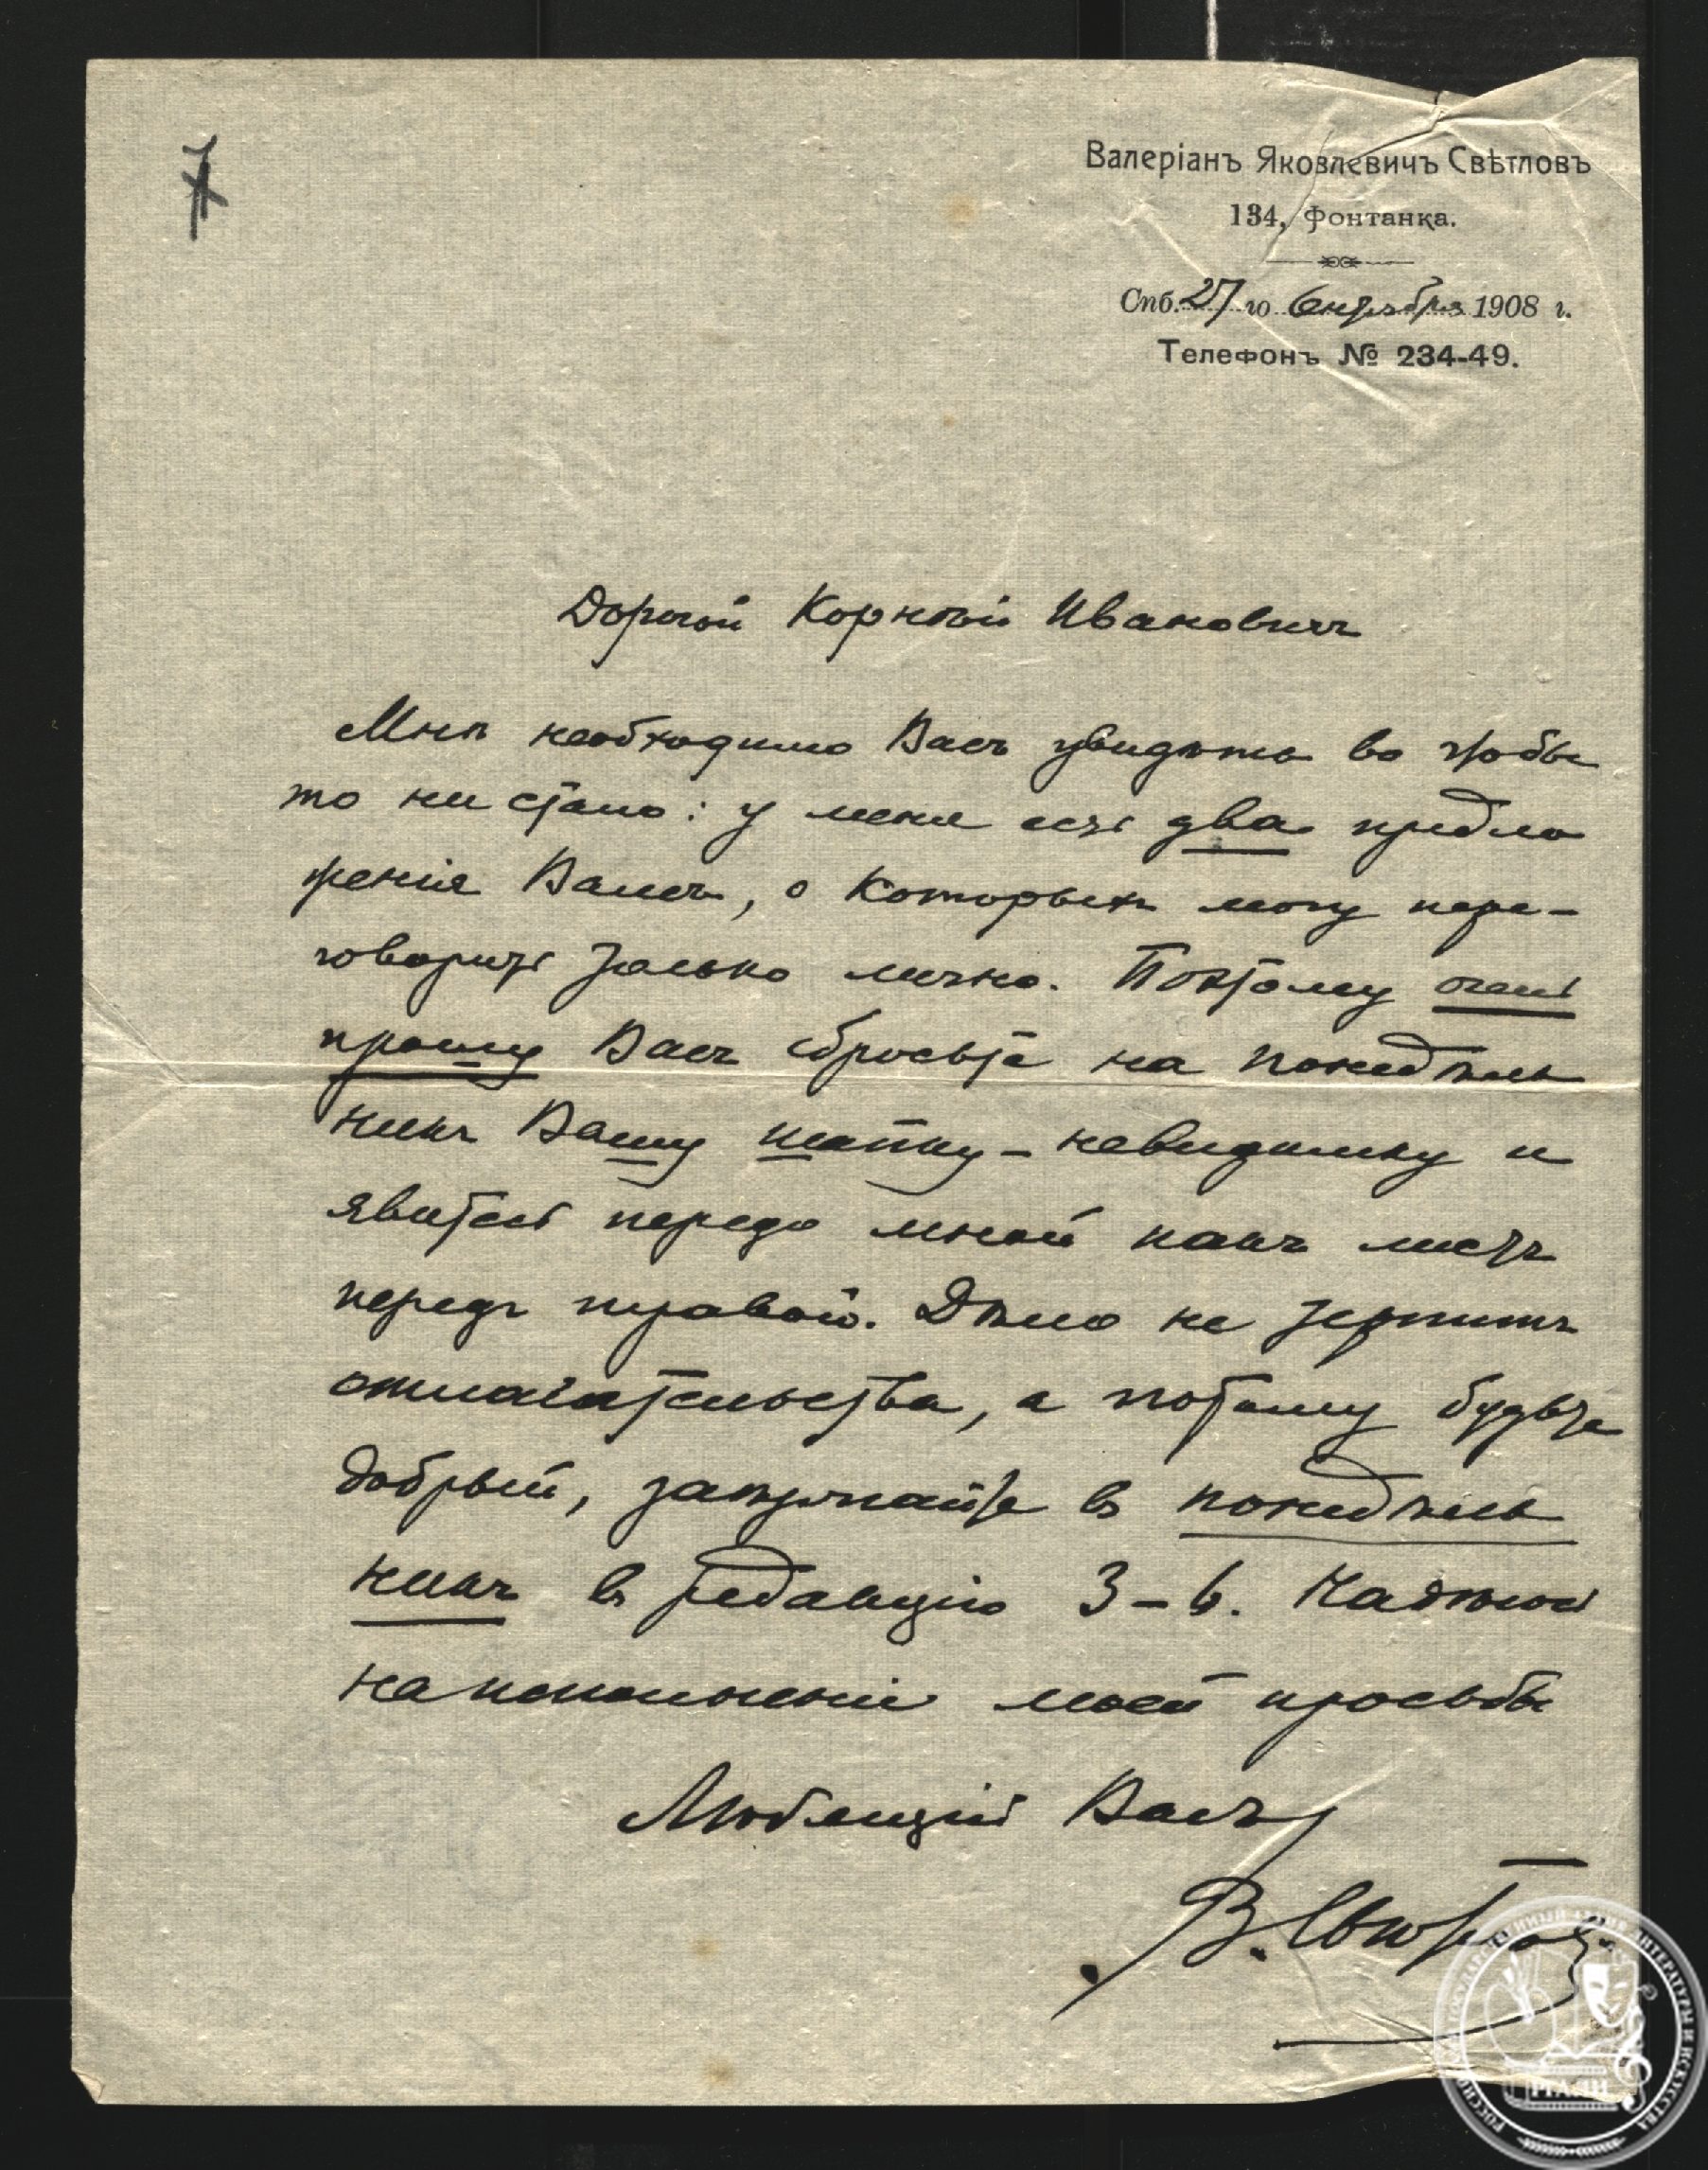 Валеріанъ Яковлевичъ Свѣтловъ
134, Фонтанка.
Спб. 27 го 1908 г.
Телефонъ № 234-49.
Дорогой Корнѣй Ивановичъ
Мнѣ необходимо Васъ увидѣть во чтобы
то ни стало: у меня есть два предло
женія Вамъ, о которыхъ могу пере-
говорить только лично. Поэтому очень
прошу Васъ сбросьте на понедѣль
никъ Вашу шапку-невидимку и
явитесь передо мной какъ листъ
передъ травой. Дѣло не терпитъ
отлагательства, а потому будьте
добрый, заѣзжайте въ понедѣль
никъ въ редакцію 3-6. Надѣюсь
на исполненіе моей просьбы
Любящій Васъ
В. Свѣтловъ
РОССИЙСКИЙ ГОСУДАРСТВЕННЫЙ АРХИВ ЛИТЕРАТУРЫ И ИСКУССТВА
РГАЛИ